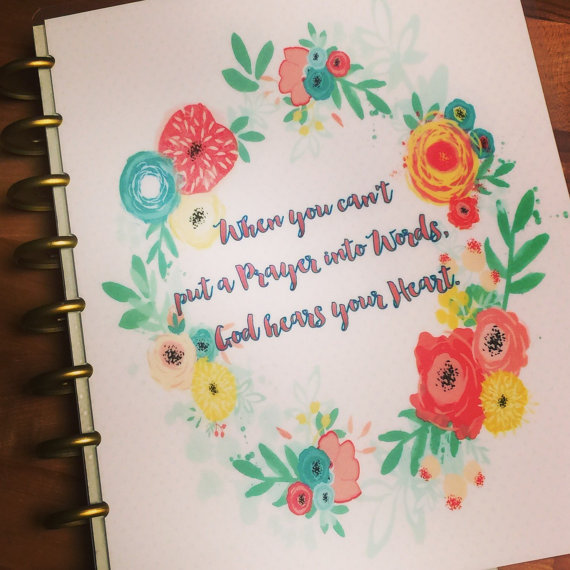 When you can't
put a Prayer into Words,
God hears your Heart.